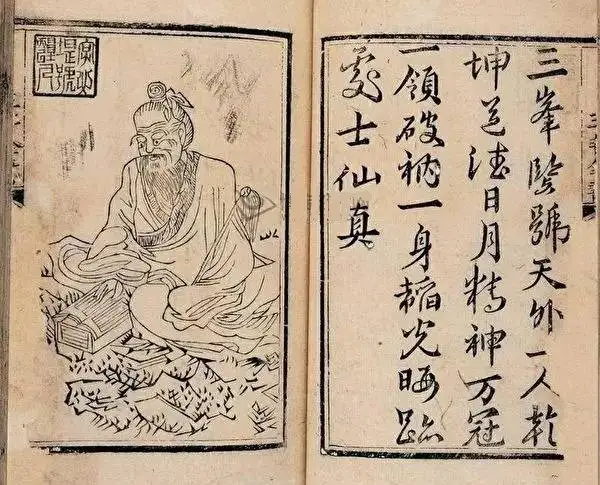 三峯豎號天外一人乾
坤道法日月精神万冠
一領破衲一身韜光晦跡
處士仙真